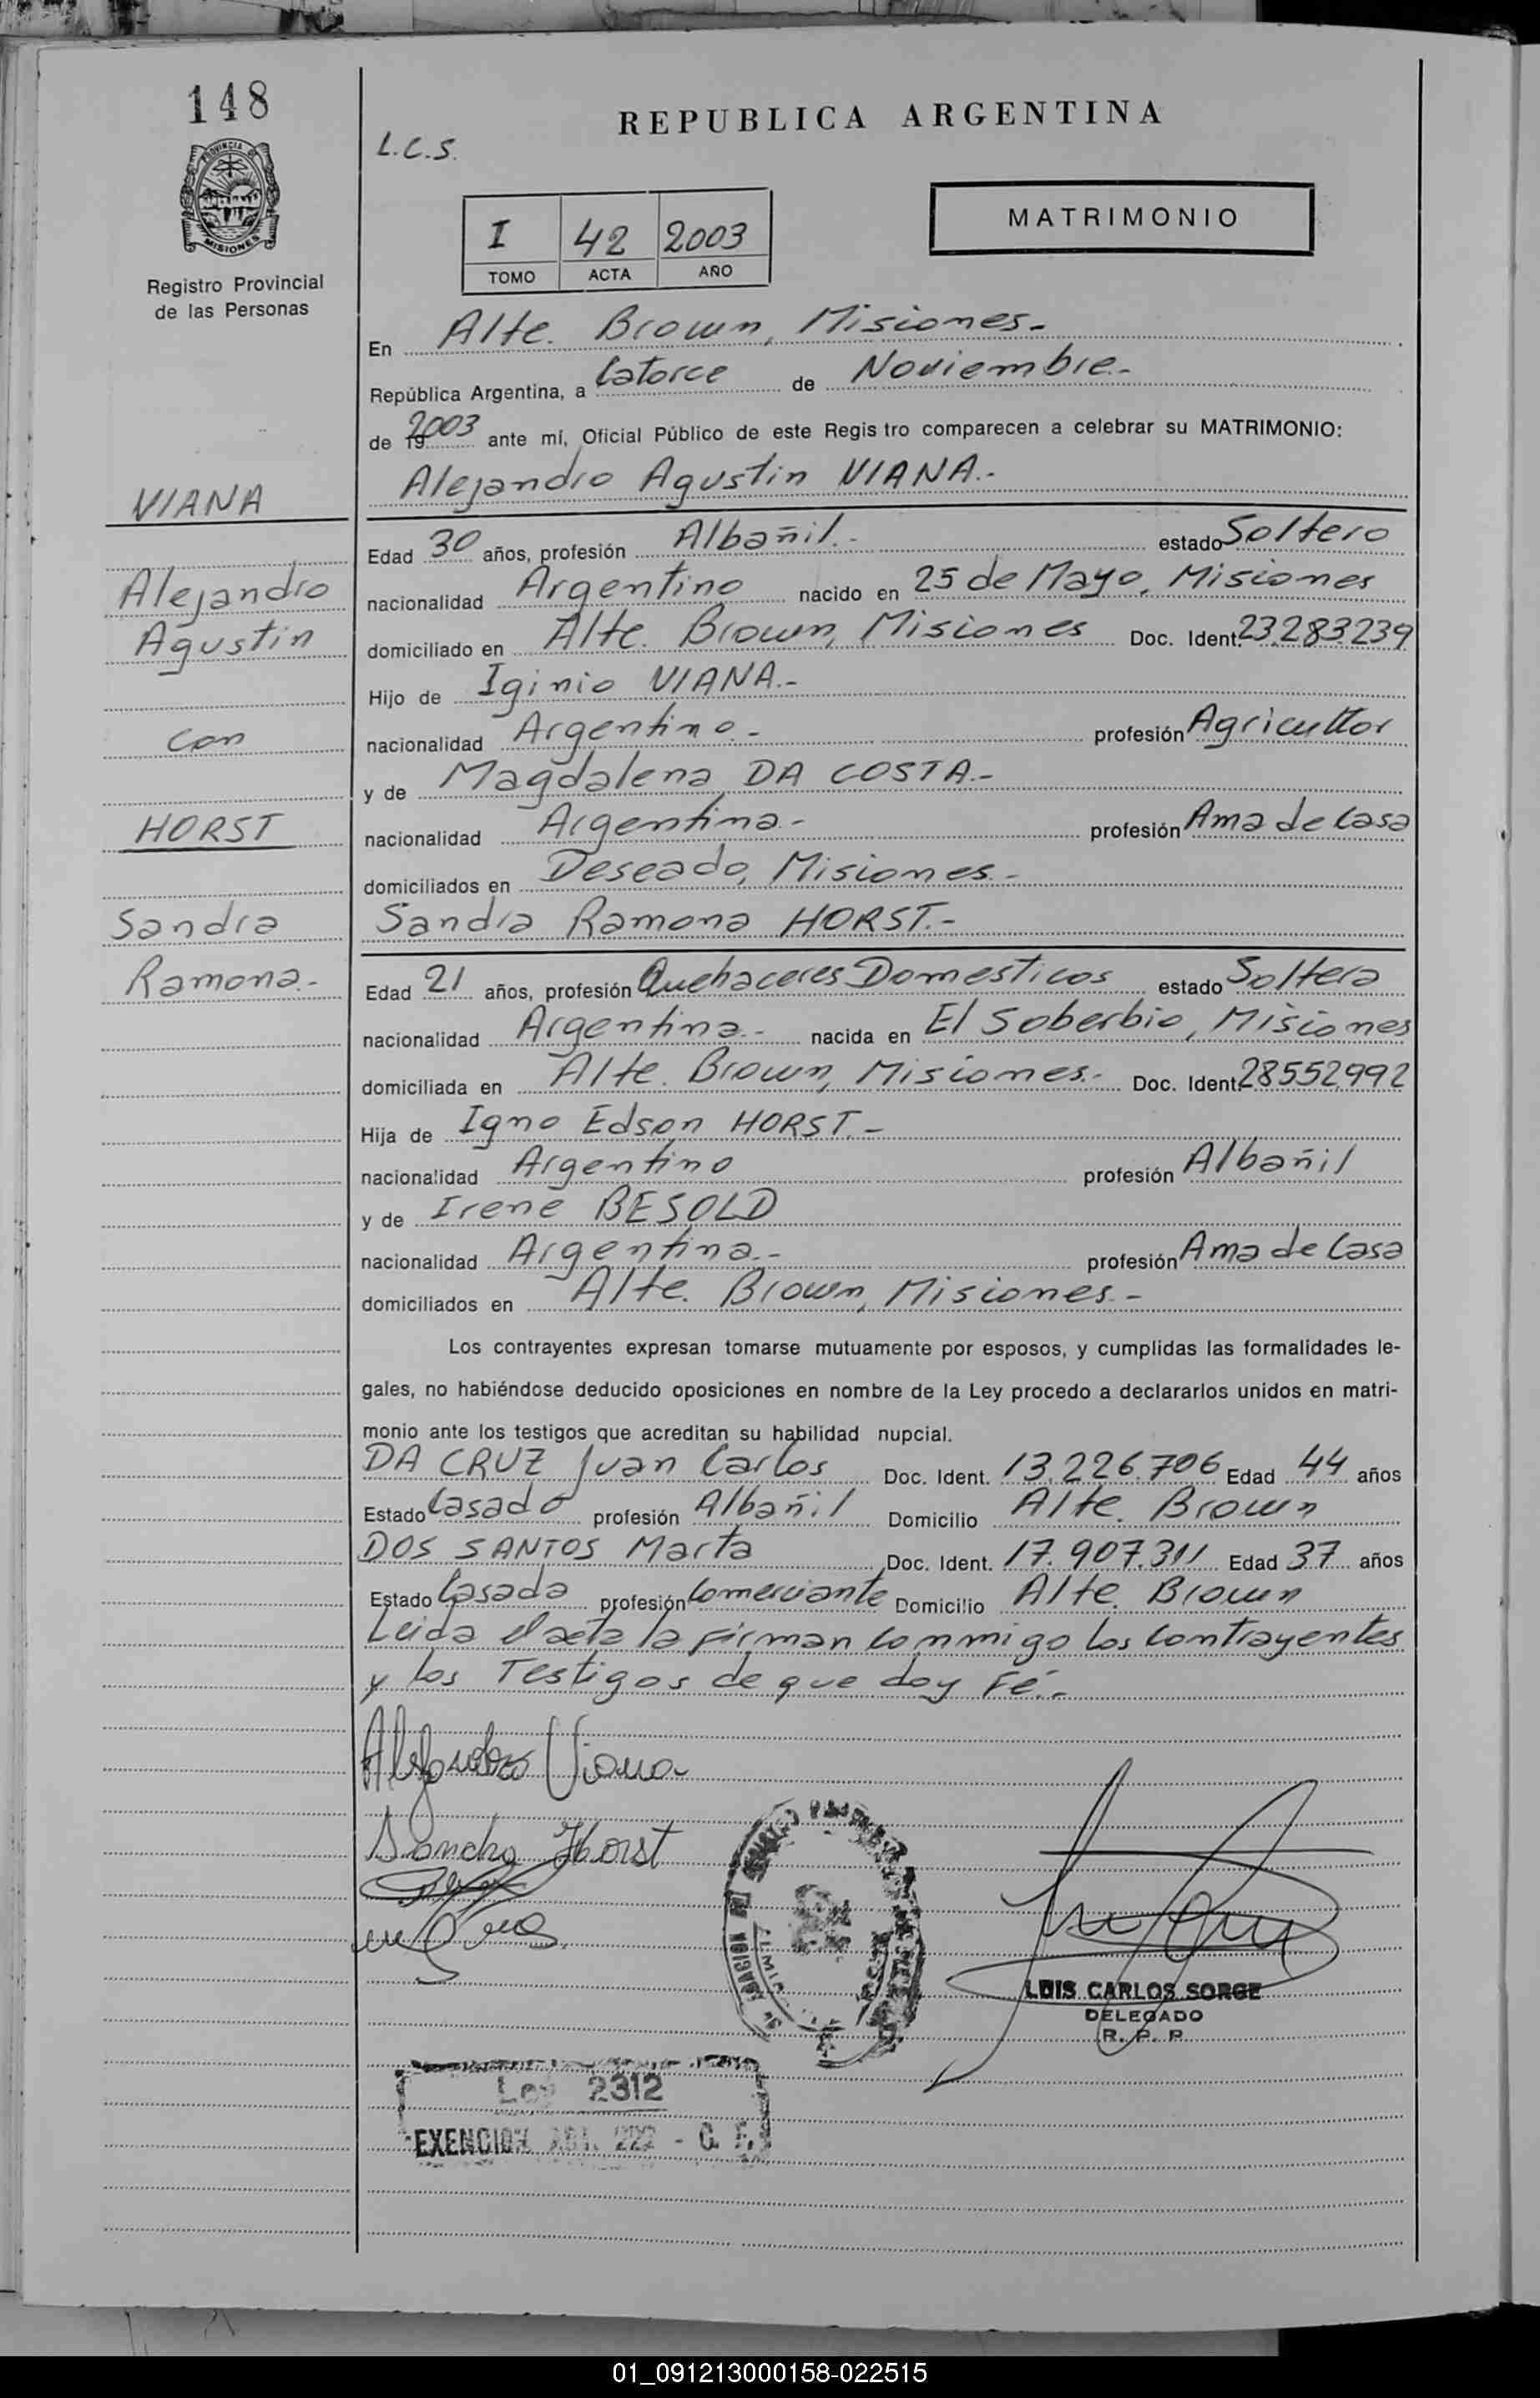 148
REPUBLICA ARGENTINA
L.C.S.
PROVINCIA DE
MISIONES
Registro Provincial
de las Personas
I 42 2003
TOMO ACTA AÑO
MATRIMONIO
En Alte. Brown, Misiones.-
República Argentina, a Catorce de Noviembre.-
de 2003 ante mí, Oficial Público de este Regis tro comparecen a celebrar su MATRIMONIO:
VIANA
Alejandro
Agustin
con
HORST
Sandra
Ramona.-
Alejandro Agustin VIANA.-
Edad 30 años, profesión Albañil.- estado Soltero
nacionalidad Argentino nacido en 25 de Mayo, Misiones
domiciliado en Alte. Brown, Misiones Doc. Ident. 23.283.239
Hijo de Iginio VIANA.-
nacionalidad Argentino.- profesión Agricultor
y de Magdalena DA COSTA.-
nacionalidad Argentina.- profesión Ama de Casa
domiciliados en Deseado, Misiones.-
Sandra Ramona HORST.-
Edad 21 años, profesión Quehaceres Domesticos estado Soltera
nacionalidad Argentina.- nacida en El Soberbio, Misiones
domiciliada en Alte. Brown, Misiones.- Doc. Ident. 28552.992
Hija de Igno Edson HORST.-
nacionalidad Argentino profesión Albañil
y de Irene BESOLD
nacionalidad Argentina.- profesión Ama de Casa
domiciliados en Alte. Brown, Misiones.-
Los contrayentes expresan tomarse mutuamente por esposos, y cumplidas las formalidades le-
gales, no habiéndose deducido oposiciones en nombre de la Ley procedo a declararlos unidos en matri-
monio ante los testigos que acreditan su habilidad nupcial.
DA CRUZ Juan Carlos Doc. Ident. 13.226.706 Edad 44 años
Estado Casado profesión Albañil Domicilio Alte. Brown
DOS SANTOS Marta Doc. Ident. 17.907.311 Edad 37 años
Estado Casada profesión Comerciante Domicilio Alte. Brown
Leida el acta la Firman Conmigo los Contrayentes
y los Testigos de que doy Fé.-
Alejandro Viana
Sandra Horst
LUIS CARLOS SORGE
DELEGADO
R. P. P.
Ley 2312
EXENCION ART. 222 - C. F.
01_091213000158-022515